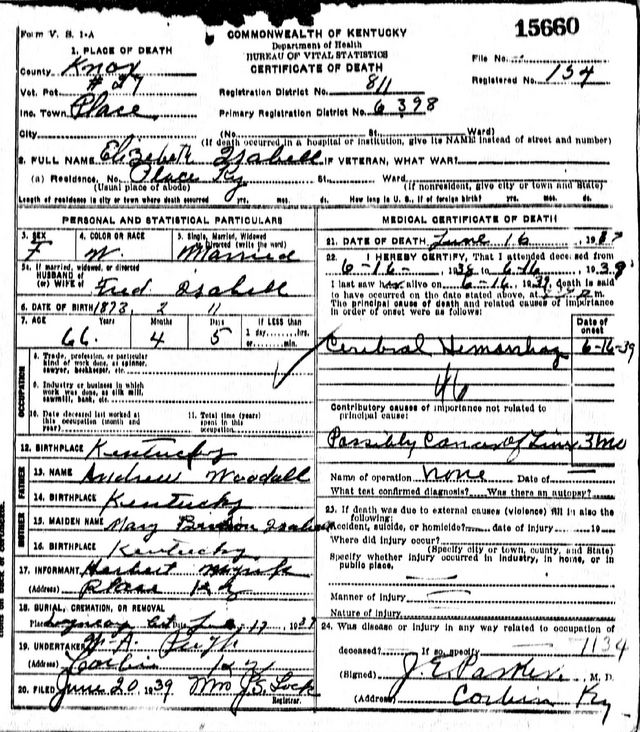 Form V. S. 1-A
COMMONWEALTH OF KENTUCKY
Department of Health
BUREAU OF VITAL STATISTICS
CERTIFICATE OF DEATH
15660
File No.
Registered No. 154
1. PLACE OF DEATH
County Knox
Vot. Pct. #27
Inc. Town Place
Registration District No. 811
Primary Registration District No. 6398
City (No. St. Ward)
(If death occurred in a hospital or institution, give its NAME instead of street and number)
2. FULL NAME Elizebeth Isabell IF VETERAN, WHAT WAR?
(a) Residence. No. Place Ky St. Ward.
(Usual place of abode) (If nonresident, give city or town and State)
Length of residence in city or town where death occurred yrs. mos. ds. How long in U. S., if of foreign birth? yrs. mos. ds.
PERSONAL AND STATISTICAL PARTICULARS
3. SEX F
4. COLOR OR RACE W.
5. Single, Married, Widowed or Divorced (write the word) Married
5a. If married, widowed, or divorced
HUSBAND of
(or) WIFE of Fred Isabell
6. DATE OF BIRTH 1873 2 11
7. AGE Years Months Days If LESS than
66. 4 5 1 day, hrs.
or min.
OCCUPATION
8. Trade, profession, or particular
kind of work done, as spinner,
sawyer, bookkeeper, etc.
9. Industry or business in which
work was done, as silk mill,
sawmill, bank, etc.
10. Date deceased last worked at
this occupation (month and
year)
11. Total time (years)
spent in this
occupation
12. BIRTHPLACE Kentucky
FATHER
13. NAME Andrew Woodall
14. BIRTHPLACE Kentucky
MOTHER
15. MAIDEN NAME Mary
16. BIRTHPLACE Kentucky
17. INFORMANT Herbert
(Address) Place Ky
18. BURIAL, CREMATION, OR REMOVAL
Place Date June 17, 1939
19. UNDERTAKER
(Address) Corbin Ky
20. FILED June 20 1939 Mrs J. S. Lock
Registrar.
MEDICAL CERTIFICATE OF DEATH
21. DATE OF DEATH June 16, 19
22. I HEREBY CERTIFY, That I attended deceased from
6-16- 1939 to 6-16, 1939
I last saw her alive on 6-16, 1939, death is said
to have occurred on the date stated above, at m.
The principal cause of death and related causes of importance
in order of onset were as follows:
Date of
onset
Cerebral Hemorrhag 6-16-39
46
Contributory causes of importance not related to
principal cause:
Possibly Cancer of Liver 3 Mo
Name of operation none Date of
What test confirmed diagnosis? Was there an autopsy?
23. If death was due to external causes (violence) fill in also the
following:
Accident, suicide, or homicide? date of injury 19
Where did injury occur?
(Specify city or town, county, and State)
Specify whether injury occurred in industry, in home, or in
public place.
Manner of injury
Nature of injury
24. Was disease or injury in any way related to occupation of
deceased? If so, specify 1134
(Signed) J. E. Parker M. D.
(Address) Corbin Ky